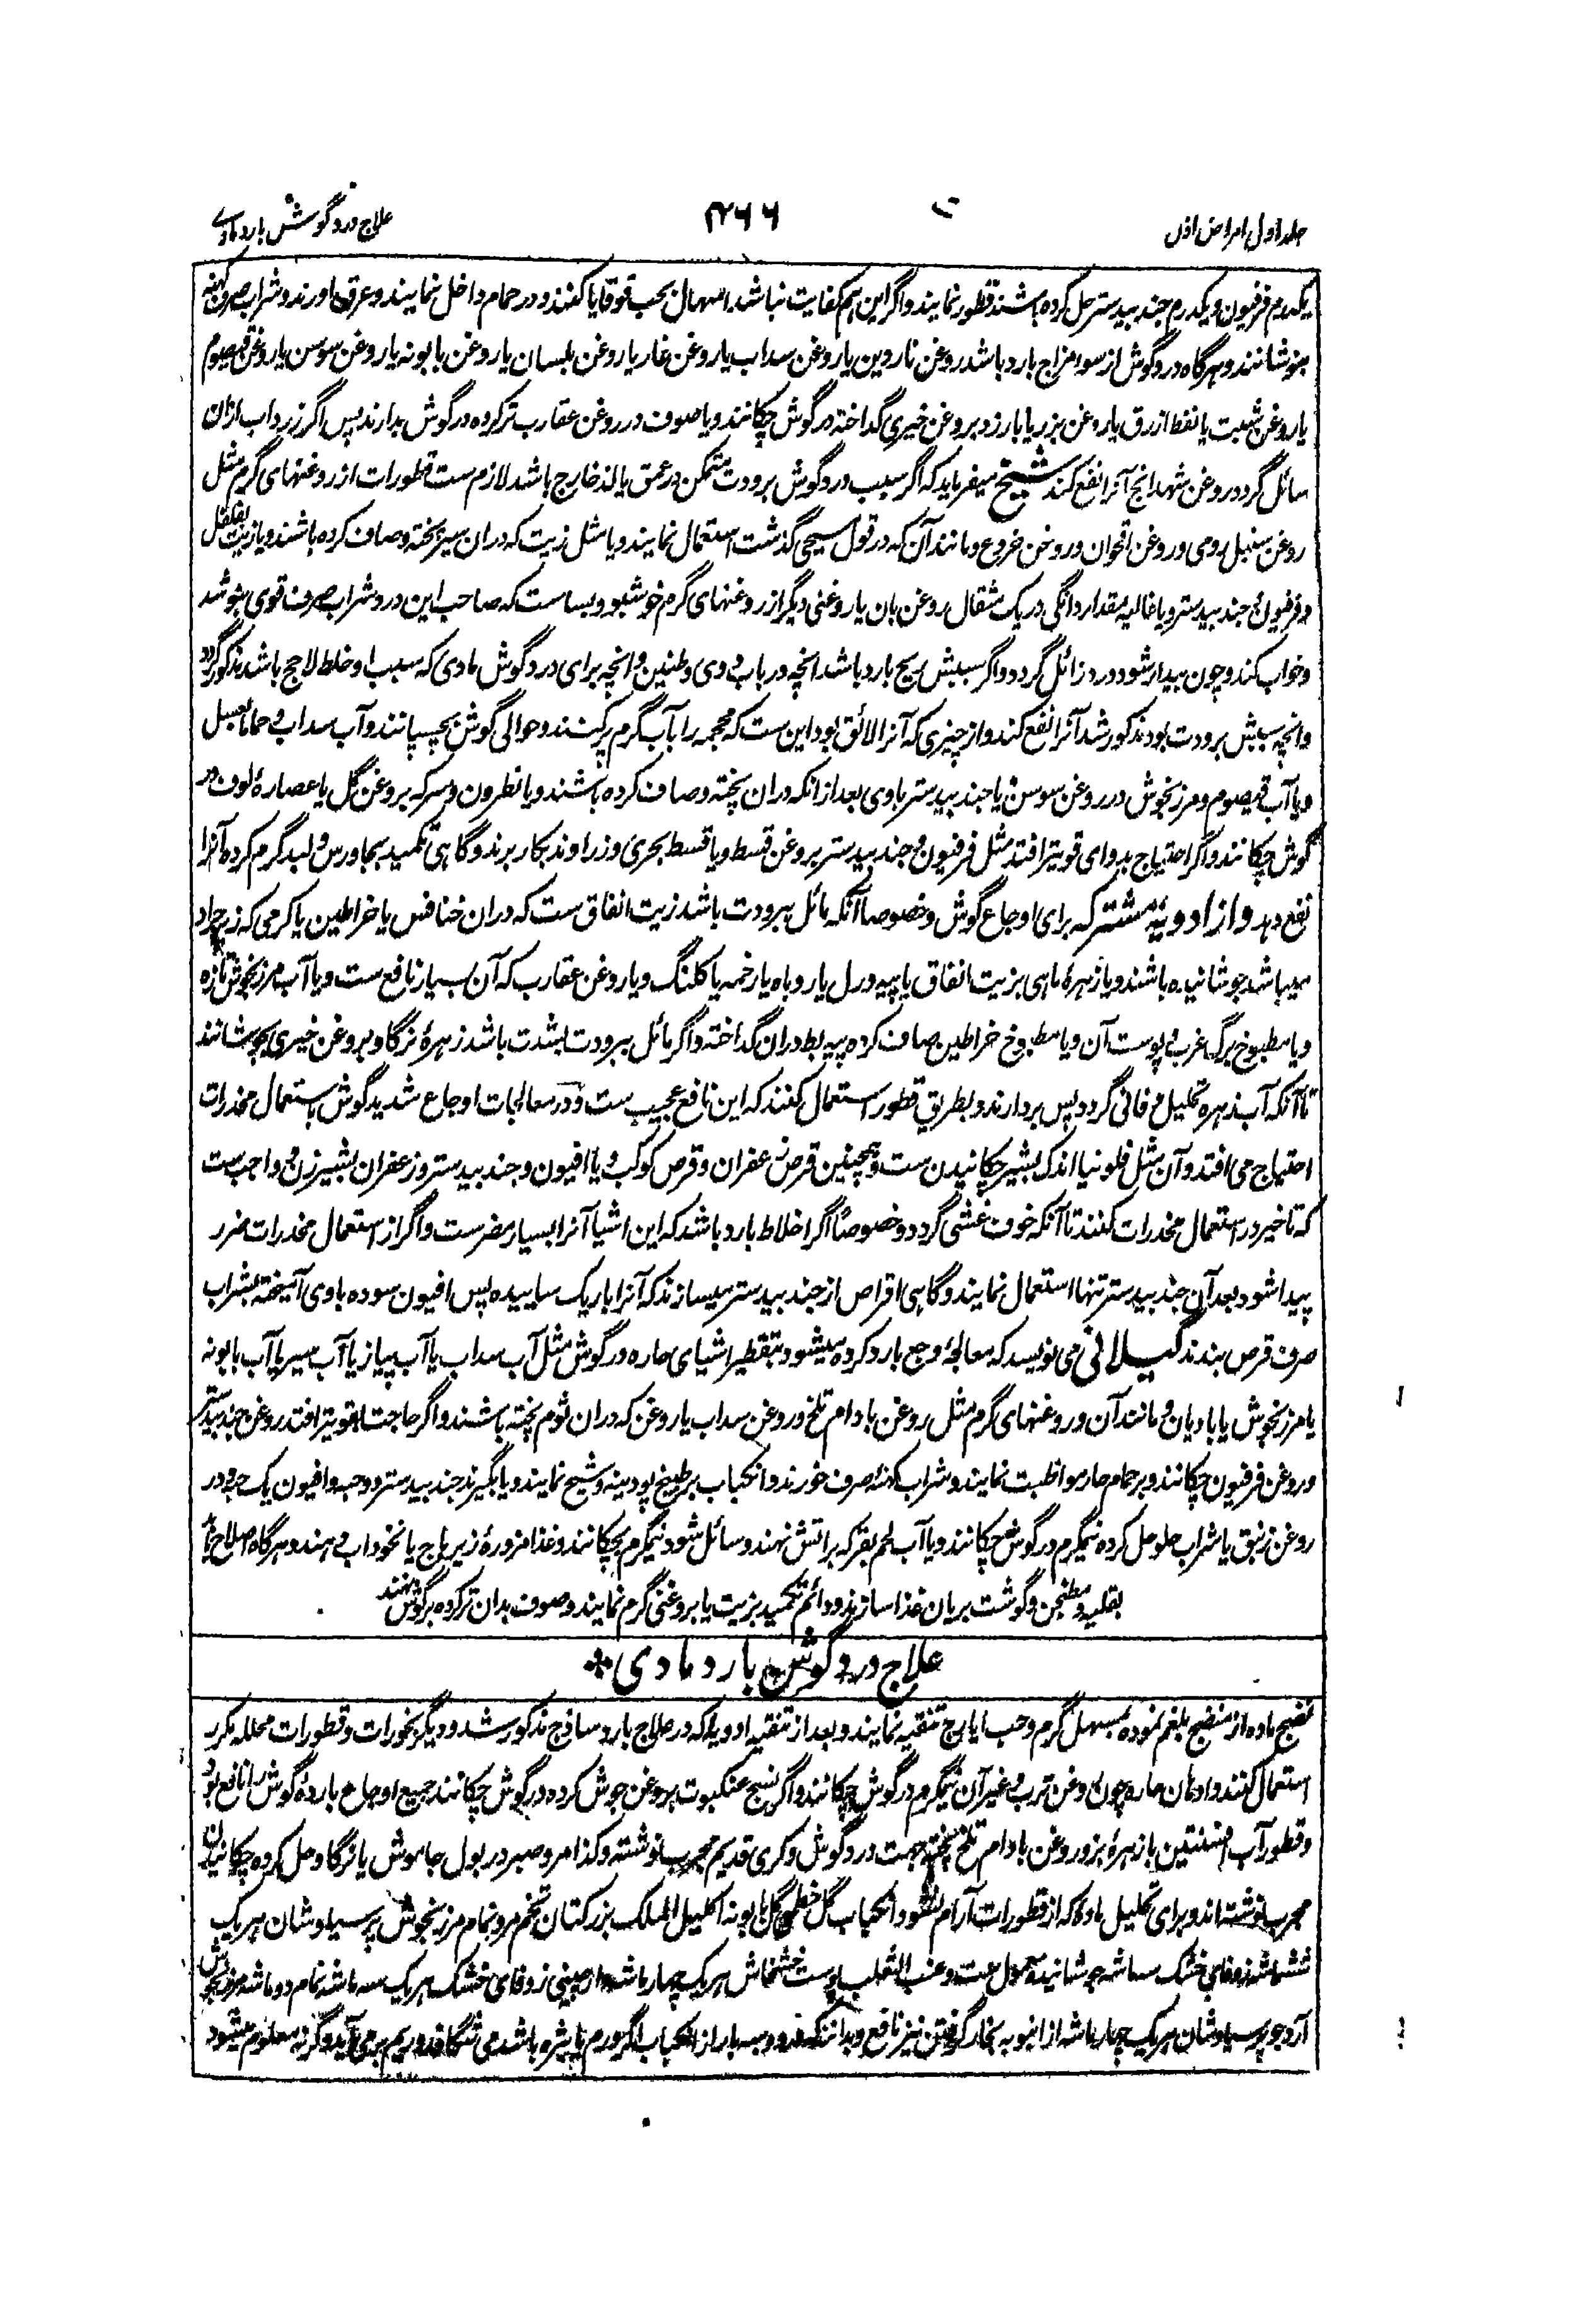 جلد اول امراض اذن
۲۶۶
علاج درد گوش بارد مادی
یکدرم فرفیون و یکدرم جندبیدستر حل کرده باشند قطور نمایند و اگر این هم کفایت نباشد اسهال بحب قوقایا کنند و در حمام داخل نمایند و عرق آورند و شراب صرف کهنه
بنوشانند و هرگاه درد گوش از سوء مزاج بارد باشد روغن ناردین یا روغن سداب یا روغن غار یا روغن بلسان یا روغن بابونه یا روغن سوسن یا روغن قیصوم
یا روغن شبت یا نفط ازرق یا روغن بزر یا بارزد بروغن خیری گداخته در گوش چکانند و یا صوف در روغن عقارب تر کرده در گوش بدارند پس اگر زرداب ازان
سائل گردد روغن شهدانج آنرا نفع کند شیخ میفرماید که اگر سبب درد گوش برودت متمکن در عمق یا از خارج باشد لازم ست قطورات از روغنهای گرم مثل
روغن سنبل رومی و روغن اقحوان و روغن خروع و مانند آن که در قول مسیحی گذشت استعمال نمایند و یا مثل زیت که دران سیر پخته و صاف کرده باشند و یا زیت بفلفل
و فرفیون و جندبیدستر و یا غالیه مقدار دانگی در یک مثقال روغن بان یا روغنی دیگر از روغنهای گرم خوشبو و بسا ست که صاحب این درد شراب صرف قوی بنوشد
و خواب کند و چون بیدار شود درد زائل گردد و اگر سببش ریح بارد باشد انچه در باب دوی و طنین و انچه برای درد گوش مادی که سبب او خلط لاحج باشد مذکور گردد
و انچه سببش برودت بود مذکور شد آنرا نفع کند و از چیزی که آنرا لائق بود این ست که محجمه را بآب گرم پر کنند و حوالی گوش بچسپانند و آب سداب و حماما بعسل
و یا آب قیصوم و مرزنجوش در روغن سوسن یا جندبیدستر باوی بعد ازانکه دران پخته و صاف کرده باشند و یا نطرون و سرکه بروغن گل یا عصارهٔ لوف در
گوش چکانند و اگر احتیاج بدوای قویتر افتد مثل فرفیون و جندبیدستر بروغن قسط و یا قسط بحری و زراوند بکار برند و گاهی تکمید بجاورس و لبد گرم کرده آنرا
نفع دهد و از ادویهٔ مشترکه برای اوجاع گوش و خصوصا آنکه مائل ببرودت باشد زیت انفاق ست که دران خنافس یا خراطین یا کرمی که زیر جراد
میباشد جوشانیده باشند و یا زهرهٔ ماهی بزیت انفاق یا پیه ورل یا روباه یا رخمه یا کلنگ و یا روغن عقارب که آن بسیار نافع ست و یا آب مرزنجوش تازه
و یا مطبوخ برگ غرب و پوست آن و یا مطبوخ خراطین صاف کرده پیه بط دران گداخته و اگر مائل ببرودت بشدت باشد زهرهٔ نرگاو بروغن خیری بجوشانند
تا آنکه آب زهره تحلیل و فانی گردد پس بردارند و بطریق قطور استعمال کنند که این نافع عجیب ست و در معالجات اوجاع شدید گوش باستعمال مخدرات
احتیاج می افتد و آن مثل فلونیا اندک بشیر چکانیدن ست و همچنین قرص زعفران و قرص کوکب و یا افیون و جندبیدستر و زعفران بشیر زن و واجب ست
که تاخیر در استعمال مخدرات کنند تا آنکه خوف غشی گردد و خصوصاً اگر اخلاط بارد باشد که این اشیا آنرا بسیار مضرست و اگر از استعمال مخدرات ضرر
پیدا شود بعد آن جندبیدستر تنها استعمال نمایند و گاهی اقراص از جندبیدستر میسازند که آنرا باریک ساییده پس افیون سوده باوی آمیخته بشراب
صرف قرص بندند گیلانی می نویسد که معالجهٔ وجع بارد کرده میشود بتقطیر اشیای حاره در گوش مثل آب سداب یا آب پیاز یا آب سیر یا آب بابونه
یا مرزنجوش یا بادیان و مانند آن و روغنهای گرم مثل روغن بادام تلخ و روغن سداب یا روغن که دران ثوم پخته باشند و اگر حاجت بقویتر افتد روغن جندبیدستر
و روغن فرفیون چکانند و بر حمام حار مواظبت نمایند و شراب کهنهٔ صرف خورند و انکباب بر طبیخ پودینه و شیح نمایند و یا بگیرند جندبیدستر دو حبه و افیون یک حبه و در
روغن زنبق یا شراب حلو حل کرده نیمگرم در گوش چکانند و یا آب لحم بقر که بر آتش نهند و سائل شود نیمگرم بچکانند و غذا مزورهٔ زیرباج یا نخوداب دهند و هرگاه اصلاح یابد
بقلیه و مطنجن و گوشت بریان غذا سازند و دائم تکمید بزیت یا بروغنی گرم نمایند و صوف بدان تر کرده بر گوش نهند
علاج درد گوش بارد مادی
نضج ماده از منضج بلغم نموده بمسهل گرم و حب ایارج تنقیه نمایند و بعد از تنقیه ادویه که در علاج بارد ساذج مذکور شد و دیگر بخورات و قطورات محلله مکرر
استعمال کنند و ادهان حاره چون روغن ترب و غیر آن نیمگرم در گوش چکانند و اگر نسج عنکبوت بروغن جوش کرده در گوش چکانند جمیع اوجاع باردهٔ گوش را نافع بود
و قطور آب افسنتین با زهرهٔ بز و روغن بادام تلخ پخته جهت درد گوش و کری قدیم مجرب نوشته و کذا مر و صبر در بول جاموش یا نرگاو حل کرده چکانیدن
مجرب نوشته اند و برای تحلیل ماده که از قطورات آرام نشود انکباب گل خطمی گل بابونه اکلیل الملک بزر کتان تخم مرو نمام مرزنجوش پرسیاوشان هریک
ششماشه زوفای خشک سه ماشه جوشانیده معمول ست و عنب الثعلب پوست خشخاش هریک چهار ماشه دارچینی زوفای خشک هریک سه ماشه نمام دو ماشه مرزنجوش
آرد جو پرسیاوشان هریک چهار ماشه از انبوبه بخار گرفتن نیز نافع و بدانند که در دو سه بار از انکباب اگر ورم یا بثره باشد می شگافد و ریم برمی آید و گرنه معلوم میشود